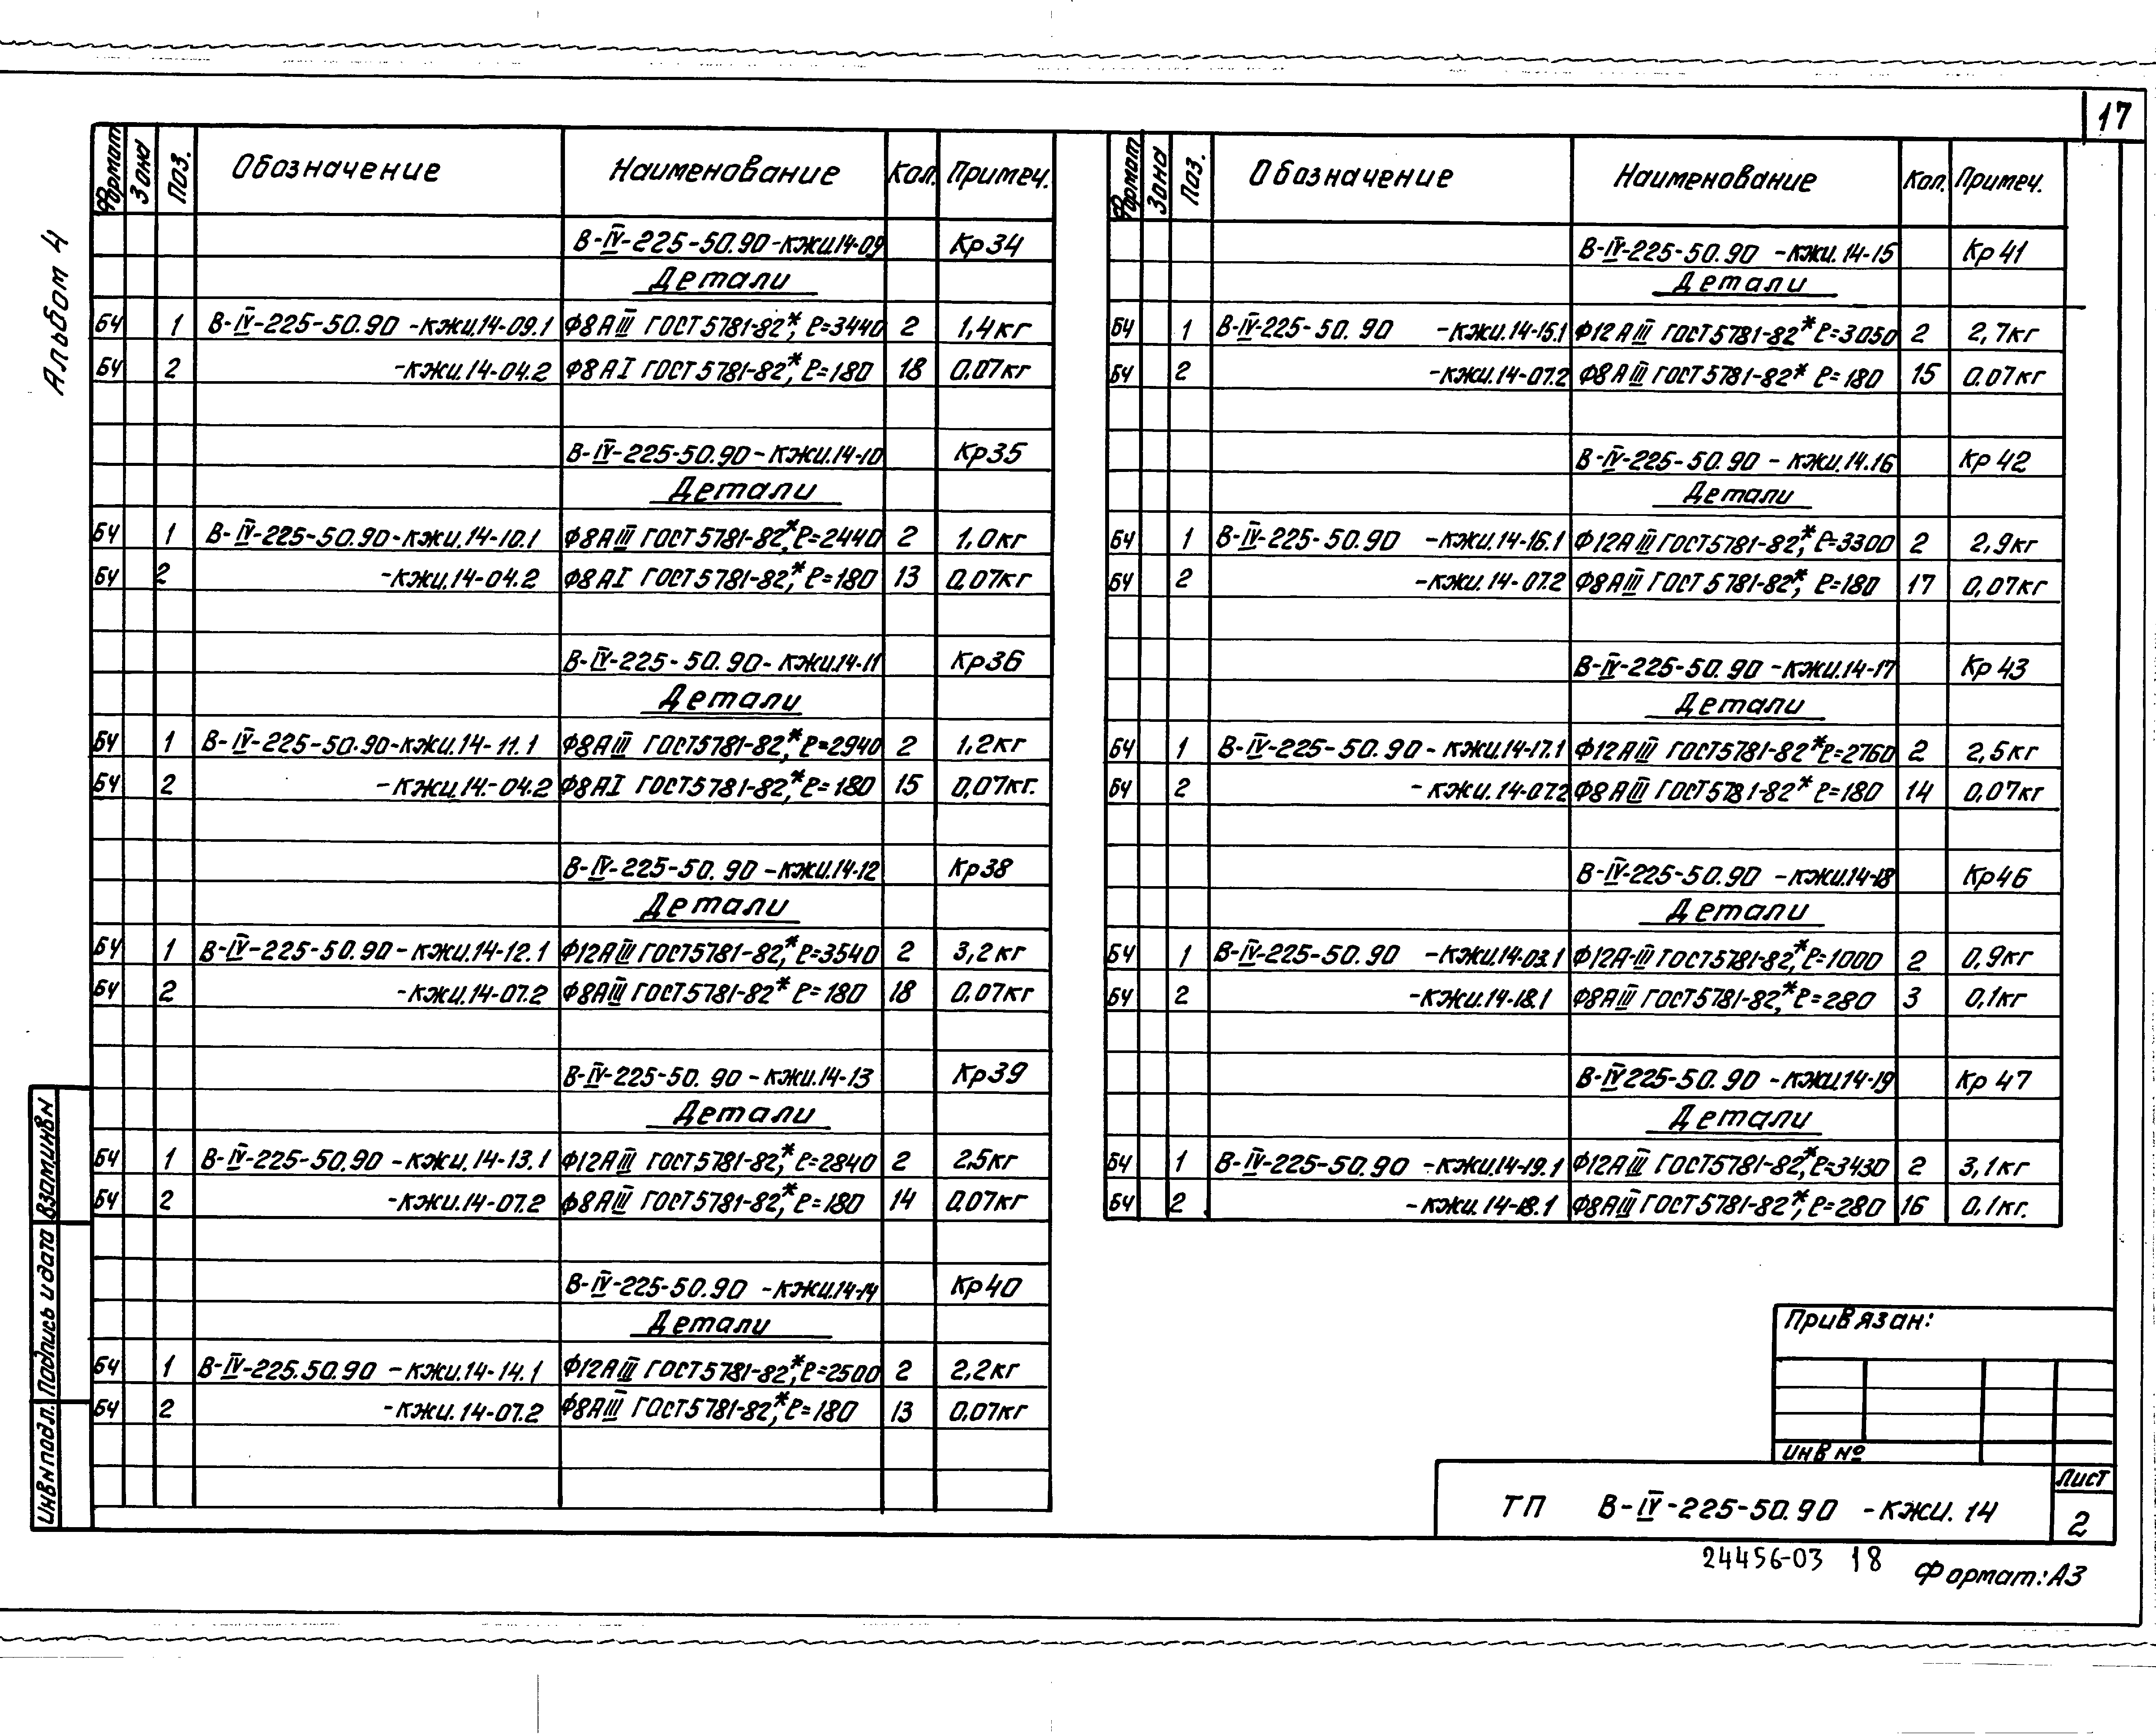 17
Альбом 4
Формат Зона Поз. Обозначение Наименование Кол. Примеч.
В-IV-225-50.90-кжи.14-09 Кр34
Детали
БЧ 1 В-IV-225-50.90-кжи.14-09.1 Ф8АIII ГОСТ5781-82*, ℓ=3440 2 1,4кг
БЧ 2 -кжи.14-04.2 Ф8АI ГОСТ5781-82*, ℓ=180 18 0.07кг
В-IV-225-50.90-кжи.14-10 Кр35
Детали
БЧ 1 В-IV-225-50.90-кжи.14-10.1 Ф8АIII ГОСТ5781-82*, ℓ=2440 2 1,0кг
БЧ 2 -кжи.14-04.2 Ф8АI ГОСТ5781-82*, ℓ=180 13 0,07кг
В-IV-225-50.90-кжи.14-11 Кр36
Детали
БЧ 1 В-IV-225-50.90-кжи.14-11.1 Ф8АIII ГОСТ5781-82*, ℓ=2940 2 1,2кг
БЧ 2 -кжи.14-04.2 Ф8АI ГОСТ5781-82*, ℓ=180 15 0,07кг.
В-IV-225-50.90-кжи.14-12 Кр38
Детали
БЧ 1 В-IV-225-50.90-кжи.14-12.1 Ф12АIII ГОСТ5781-82*, ℓ=3540 2 3,2кг
БЧ 2 -кжи.14-07.2 Ф8АIII ГОСТ5781-82* ℓ=180 18 0.07кг
В-IV-225-50.90-кжи.14-13 Кр39
Детали
БЧ 1 В-IV-225-50.90-кжи.14-13.1 Ф12АIII ГОСТ5781-82*, ℓ=2840 2 2,5кг
БЧ 2 -кжи.14-07.2 Ф8АIII ГОСТ5781-82*, ℓ=180 14 0.07кг
В-IV-225-50.90-кжи.14-14 Кр40
Детали
БЧ 1 В-IV-225.50.90-кжи.14-14.1 Ф12АIII ГОСТ5781-82*, ℓ=2500 2 2,2кг
БЧ 2 -кжи.14-07.2 Ф8АIII ГОСТ5781-82*, ℓ=180 13 0,07кг
Формат Зона Поз. Обозначение Наименование Кол. Примеч.
В-IV-225-50.90-кжи.14-15 Кр41
Детали
БЧ 1 В-IV-225-50.90-кжи.14-15.1 Ф12АIII ГОСТ5781-82* ℓ=3050 2 2,7кг
БЧ 2 -кжи.14-07.2 Ф8АIII ГОСТ5781-82* ℓ=180 15 0.07кг
В-IV-225-50.90-кжи.14.16 Кр42
Детали
БЧ 1 В-IV-225-50.90-кжи.14-16.1 Ф12АIII ГОСТ5781-82*, ℓ=3300 2 2,9кг
БЧ 2 -кжи.14-07.2 Ф8АIII ГОСТ5781-82*, ℓ=180 17 0,07кг
В-IV-225-50.90-кжи.14-17 Кр43
Детали
БЧ 1 В-IV-225-50.90-кжи.14-17.1 Ф12АIII ГОСТ5781-82* ℓ=2760 2 2,5кг
БЧ 2 -кжи.14-07.2 Ф8АIII ГОСТ5781-82* ℓ=180 14 0,07кг
В-IV-225-50.90-кжи.14-18 Кр46
Детали
БЧ 1 В-IV-225-50.90-кжи.14-03.1 Ф12А-III ГОСТ5781-82*, ℓ=1000 2 0,9кг
БЧ 2 -кжи.14-18.1 Ф8АIII ГОСТ5781-82*, ℓ=280 3 0,1кг
В-IV225-50.90-кжи14-19 Кр47
Детали
БЧ 1 В-IV-225-50.90-кжи.14-19.1 Ф12АIII ГОСТ5781-82*, ℓ=3430 2 3,1кг
БЧ 2 -кжи.14-18.1 Ф8АIII ГОСТ5781-82*, ℓ=280 16 0,1кг.
Инв.Nподл. Подпись и дата Взам.инв.N
Привязан:
инв №
ТП В-IV-225-50.90-кжи.14
Лист
2
24456-03 18
Формат: А3